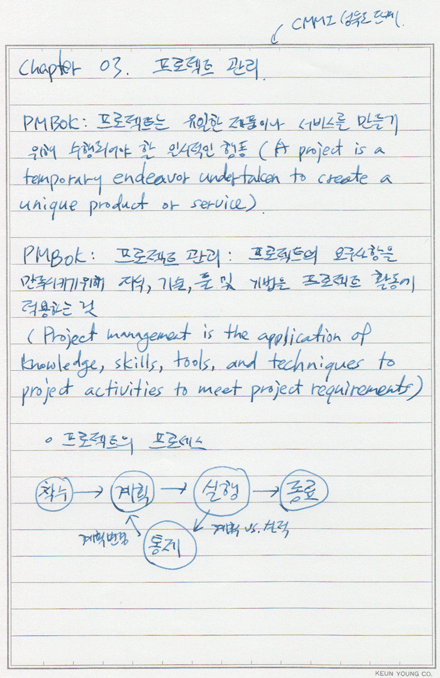 CMMI 성숙도 단계.
Chapter 03. 프로젝트 관리.
PMBOK: 프로젝트는 유일한 제품이나 서비스를 만들기
위해 수행되어야 할 일시적인 행동 (A project is a
temporary endeavor undertaken to create a
unique product or service).
PMBOK: 프로젝트 관리: 프로젝트의 요구사항을
만족시키기위해 지식, 기술, 툴 및 기법을 프로젝트 활동에
적용하는 것
(Project management is the application of
knowledge, skills, tools, and techniques to
project activities to meet project requirements)
프로젝트의 프로세스
착수 → 계획 → 실행 → 종료
계획변경 통제 계획 vs. 실적
KEUN YOUNG CO.